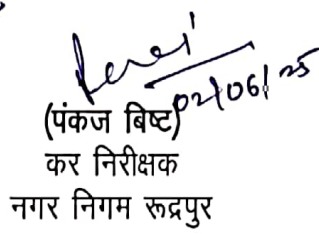 02/06/25
(पंकज बिष्ट)
कर निरीक्षक
नगर निगम रूद्रपुर